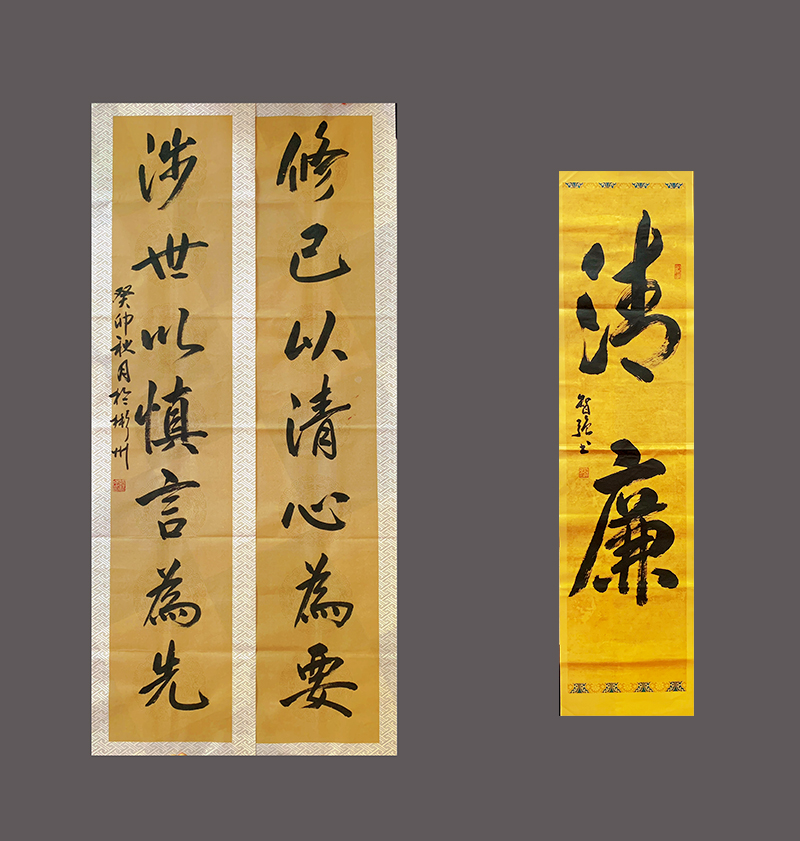 修己以清心為要
涉世以慎言為先
癸卯秋月於彬州
清廉
智強书